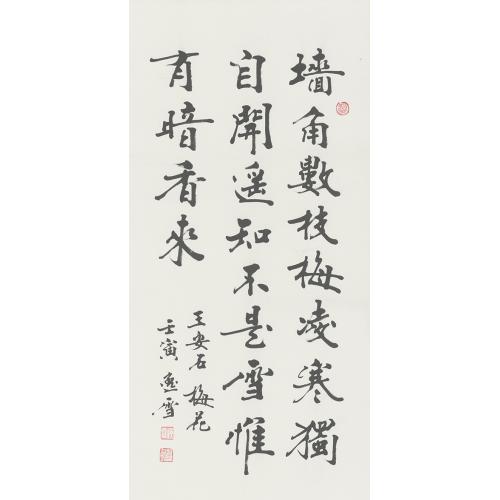 墻角數枝梅凌寒獨
自開遥知不是雪惟
有暗香來
王安石 梅花
壬寅 惠雪